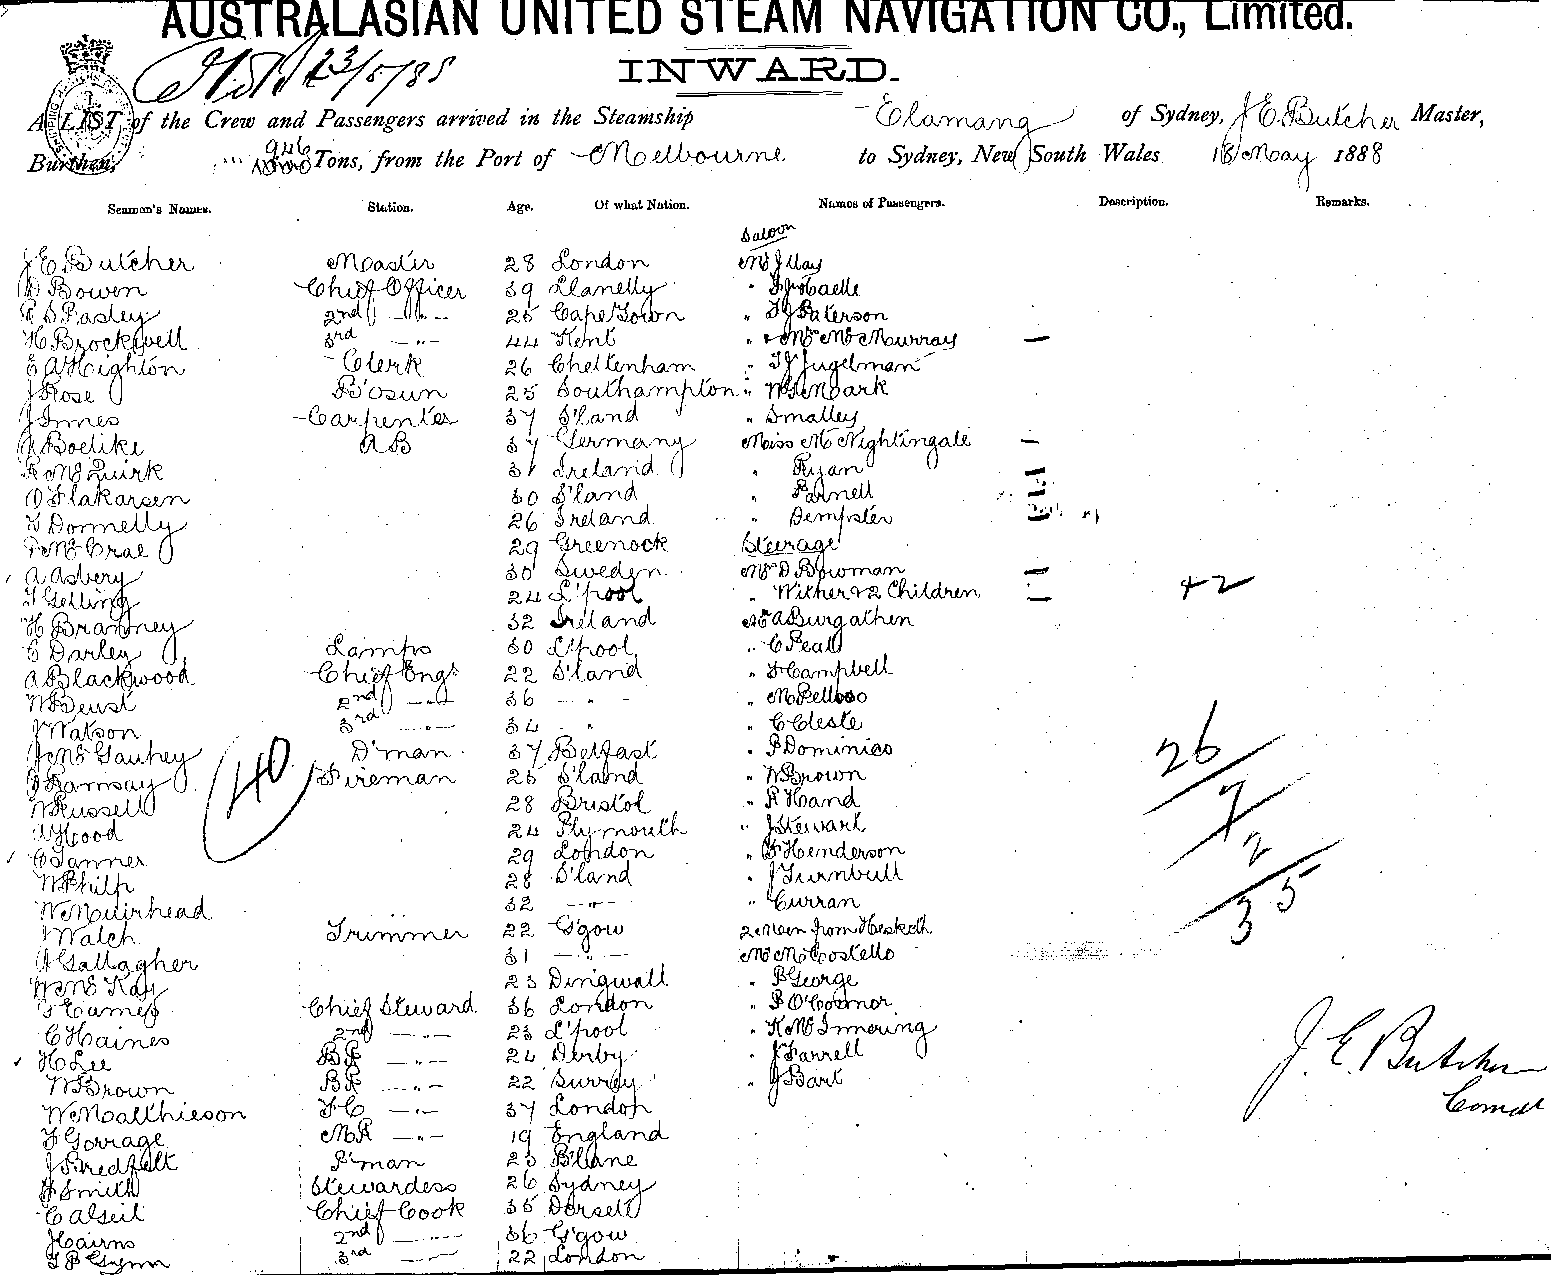 AUSTRALASIAN UNITED STEAM NAVIGATION CO., Limited.
23/5/88
INWARD.
A LIST of the Crew and Passengers arrived in the Steamship Elamang of Sydney, J E Butcher Master,
Burthen, 946 Tons, from the Port of Melbourne to Sydney, New South Wales 18 May 1888
Seamen's Names. Station. Age. Of what Nation. Names of Passengers. Description. Remarks.
Saloon
J E Butcher Master 28 London Mr J May
D Bowen Chief Officer 39 Llanelly "
S Pasley 2nd -"- 25 Cape Town " Paterson
H Brockwell 3rd -"- 44 Kent " Mrs McMurray —
E A Highton Clerk 26 Cheltenham " Jugelman
J Rose B'osun 25 Southampton " Mark
J Innes Carpenter 37 S'land " Smalley
Boelike A B 37 Germany Miss M Nightingale —
R McQuirk 31 Ireland " Ryan —
30 S'land " Parnell —
T Donnelly 26 Ireland " Dempster
P McCrae 29 Greenock Steerage
A Asbery 30 Sweden Mrs D Bowman —
T Gelling 24 L'pool " Wither & 2 Children — +2
H Branney 32 Ireland Mr A Burgathen
C Darley Lamps 30 L'pool " C Peall
A Blackwood Chief Engr 22 S'land " Campbell
W Beust 2nd -"- 36 - " - " M Pelloso
J Watson 3rd -"- 34 " " C Celeste
J McGauhey D'man 37 Belfast " P Dominico
Ramsay Fireman 25 S'land " W Brown
W Russell 28 Bristol " R Hand
A Hood 24 Plymouth " J Stewart
C Tanner 29 London " Henderson
W Philp 28 S'land " J Turnbull
W Muirhead 32 -"- " Curran
J Walch Trimmer 22 G'gow 2 Men from Hesketh
A Gallagher 31 -"- Mr M Costello
W McKay 23 Dingwall " P George
T Eames Chief Steward 36 London " P O'Connor
C Haines 2nd -"- 23 L'pool " K McInnering
H Lee BR -"- 24 Derby " J Farrell
W Brown BR -"- 22 Surrey " J Bart
W Matthieson FC -"- 37 London
T Gorrage MR -"- 19 England
J Bredfelt P'man 23 B'lane
Smith Stewardess 26 Sydney
C Alseil Chief Cook 35 Dorset
J Cairns 2nd -"- 36 G'gow
T P Glynn 3rd -"- 22 London
40
26
7
2
35
J. E. Butcher
Comdr